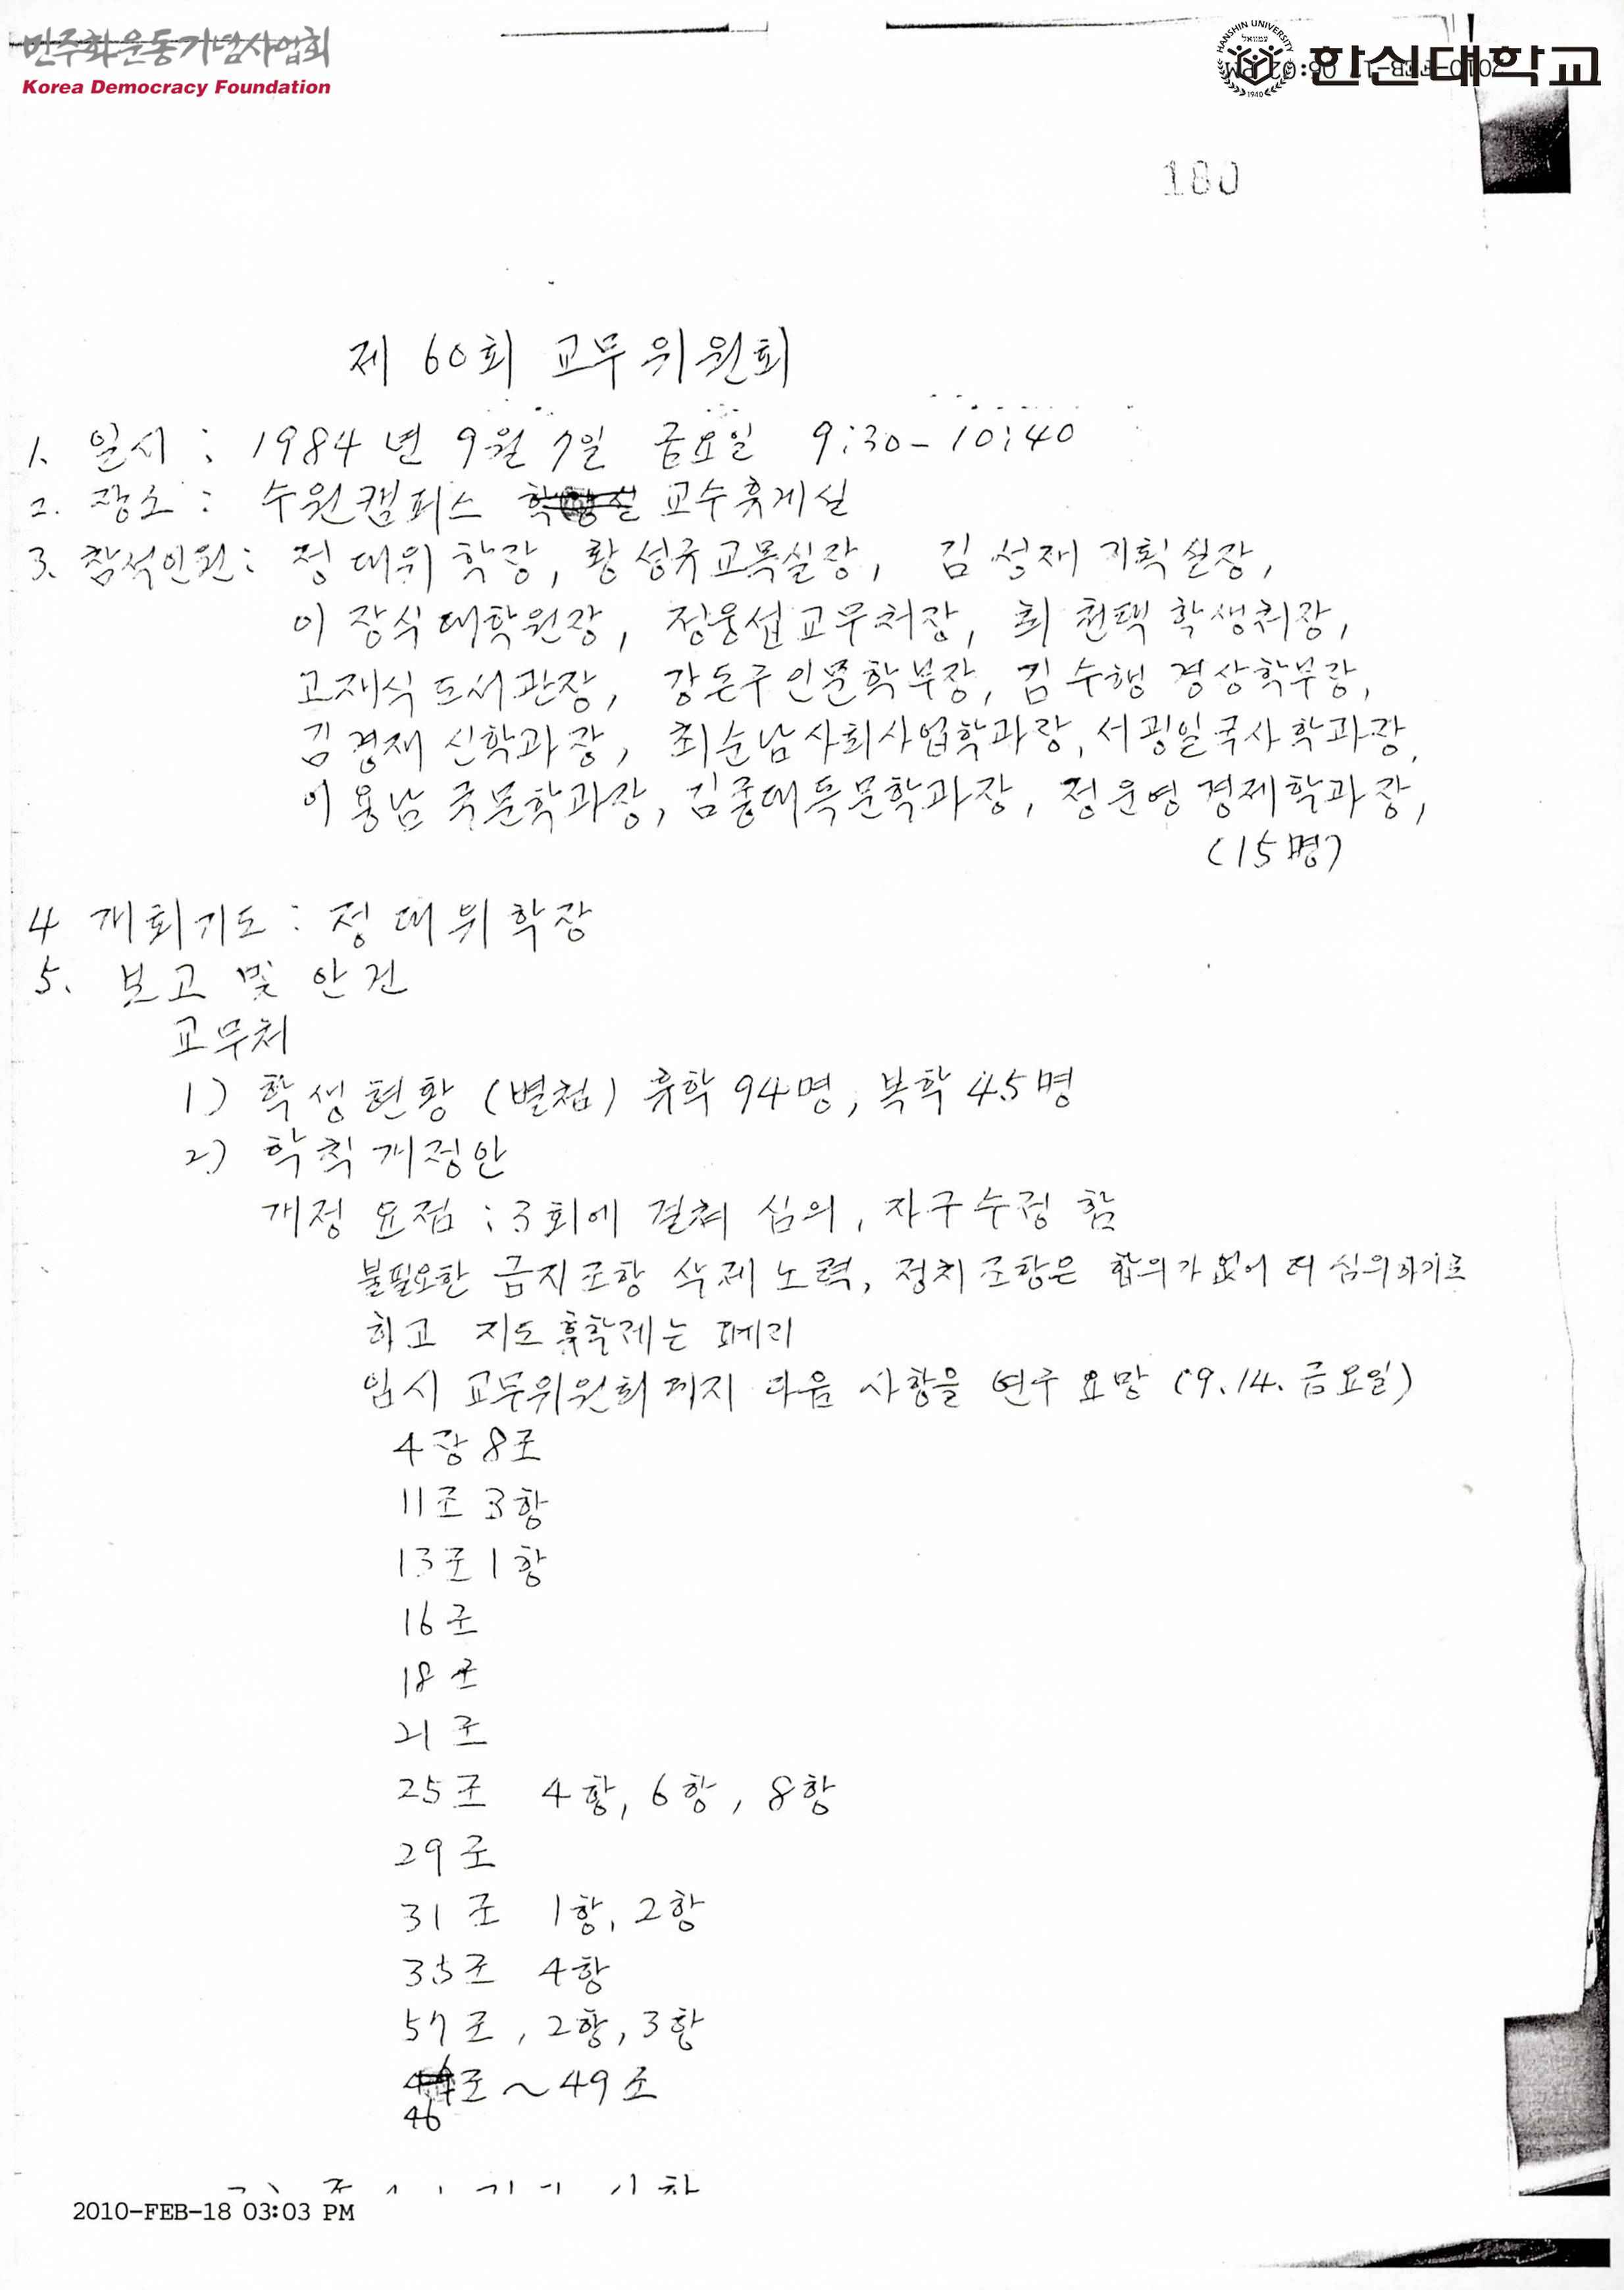 민주화운동기념사업회
Korea Democracy Foundation
HANSHIN UNIVERSITY
1940
한신대학교
180
제 60회 교무위원회
1. 일시 : 1984년 9월 7일 금요일 9:30-10:40
2. 장소 : 수원캠퍼스 교수휴게실
3. 참석인원 : 정대위 학장, 황성규교목실장, 김성재 기획실장,
이장식대학원장, 정웅섭교무처장, 최천택 학생처장,
고재식도서관장, 강돈구인문학부장, 김수행 경상학부장,
김경재 신학과장, 최순남사회사업학과장, 서굉일국사학과장,
이용남 국문학과장, 김중대독문학과장, 정운영 경제학과장,
(15명)
4 개회기도 : 정대위학장
5. 보고 및 안건
교무처
1) 학생현황 (별첨) 휴학 94명, 복학 45명
2) 학칙개정안
개정 요점 : 3회에 걸쳐 심의, 자구수정 함
불필요한 금지조항 삭제 노력, 정치조항은 합의가 없어 더 심의하기로
하고 지도휴학제는 폐리
임시 교무위원회까지 다음 사항을 연구 요망 (9.14. 금요일)
4장 8조
11조 3항
13조 1항
16조
18조
21조
25조 4항, 6항, 8항
29조
31조 1항, 2항
35조 4항
57조, 2항, 3항
46조~49조
2010-FEB-18 03:03 PM